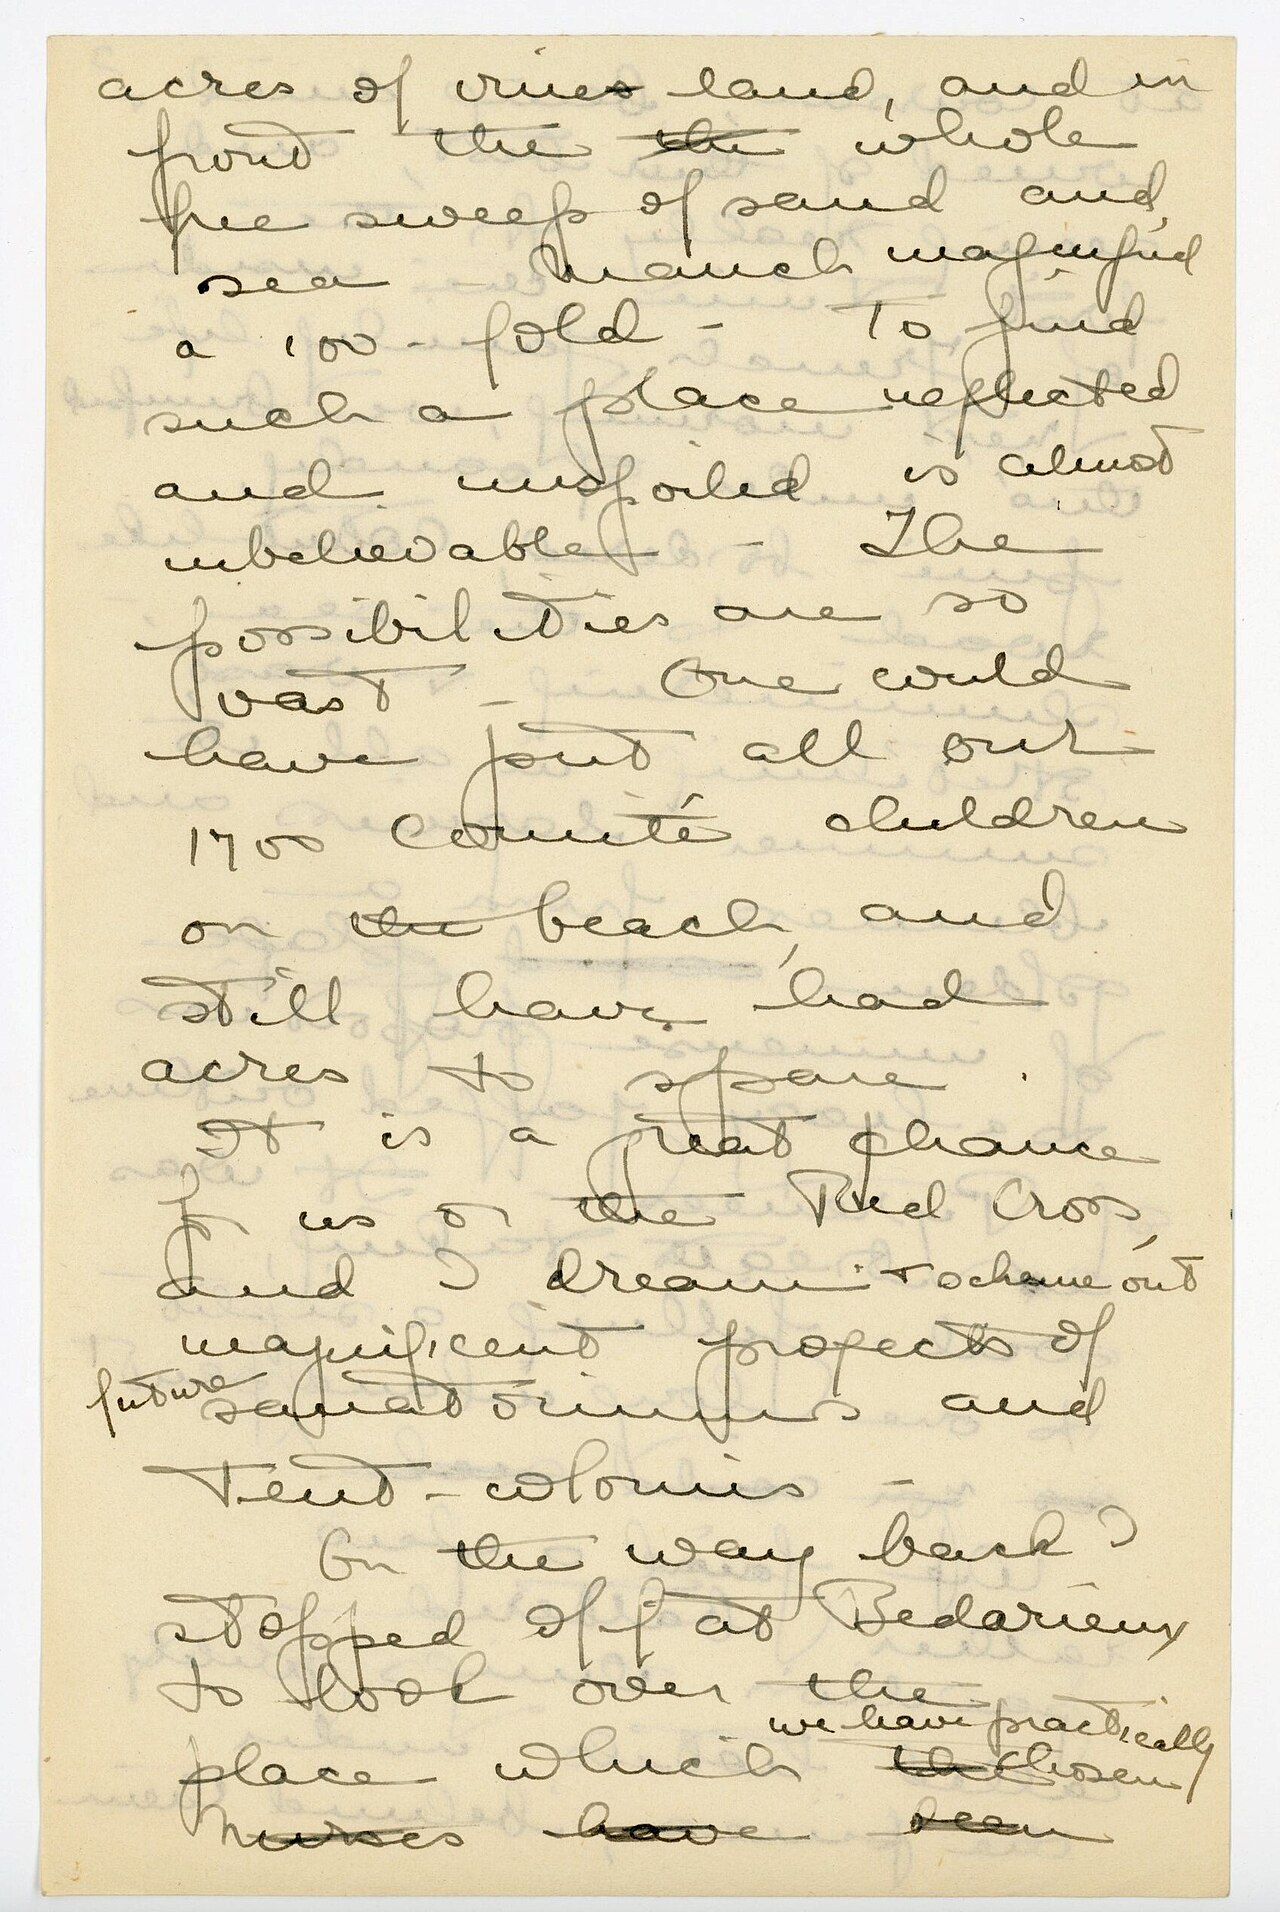 acres of vine land, and in
front the the whole
free sweep of sand and
sea - magnified
a 100-fold - To find
such a place neglected
and unspoiled is almost
unbelievable - The
possibilities are so
vast - One could
have put all our
1700 Comité children
on the beach, and
still have had
acres to spare.
It is a great chance
for us or the Red Cross,
and I dream + scheme out
magnificent projects of
future sanatoriums and
Tent-colonies -
On the way back I
stopped off at Bedarieux
to look over the
we have practically
place which the chosen
Nurses have seen